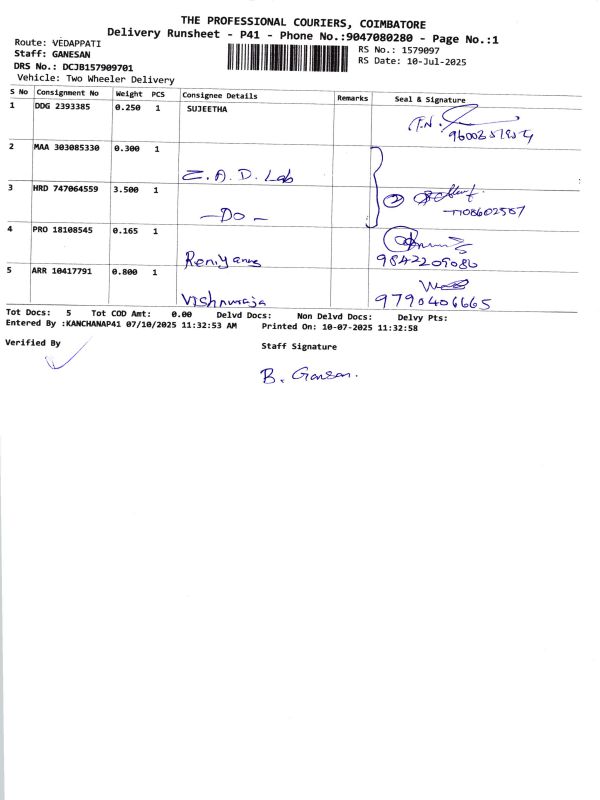 THE PROFESSIONAL COURIERS, COIMBATORE
Delivery Runsheet - P41 - Phone No.:9047080280 - Page No.:1
Route: VEDAPPATI
Staff: GANESAN
DRS No.: DCJB157909701
Vehicle: Two Wheeler Delivery
RS No.: 1579097
RS Date: 10-Jul-2025
S No Consignment No Weight PCS Consignee Details Remarks Seal & Signature
1 DDG 2393385 0.250 1 SUJEETHA T.N.
2 MAA 303085330 0.300 1 Z.A.D. Lab
3 HRD 747064559 3.500 1 -Do-
4 PRO 18108545 0.165 1 9842209080
5 ARR 10417791 0.800 1 Vishnuraja 9790406665
Tot Docs: 5 Tot COD Amt: 0.00 Delvd Docs: Non Delvd Docs: Delvy Pts:
Entered By :KANCHANAP41 07/10/2025 11:32:53 AM Printed On: 10-07-2025 11:32:58
Verified By Staff Signature
B. Gansan.